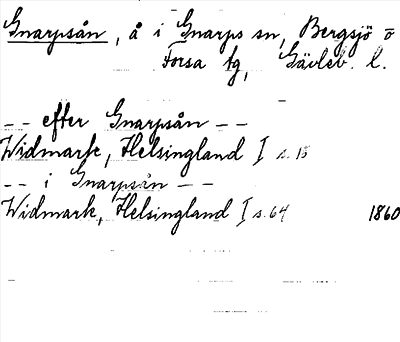 Gnarpsån, å i Gnarps sn, Bergsjö o
Forsa tg, Gävleb. l.
-- efter Gnarpsån --
Widmark, Helsingland I s. 15
-- i Gnarpsån --
Widmark, Helsingland I s. 64 1860